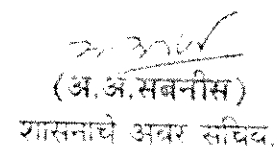 (अ.अ.सबनीस)
शासनाचे अवर सचिव.